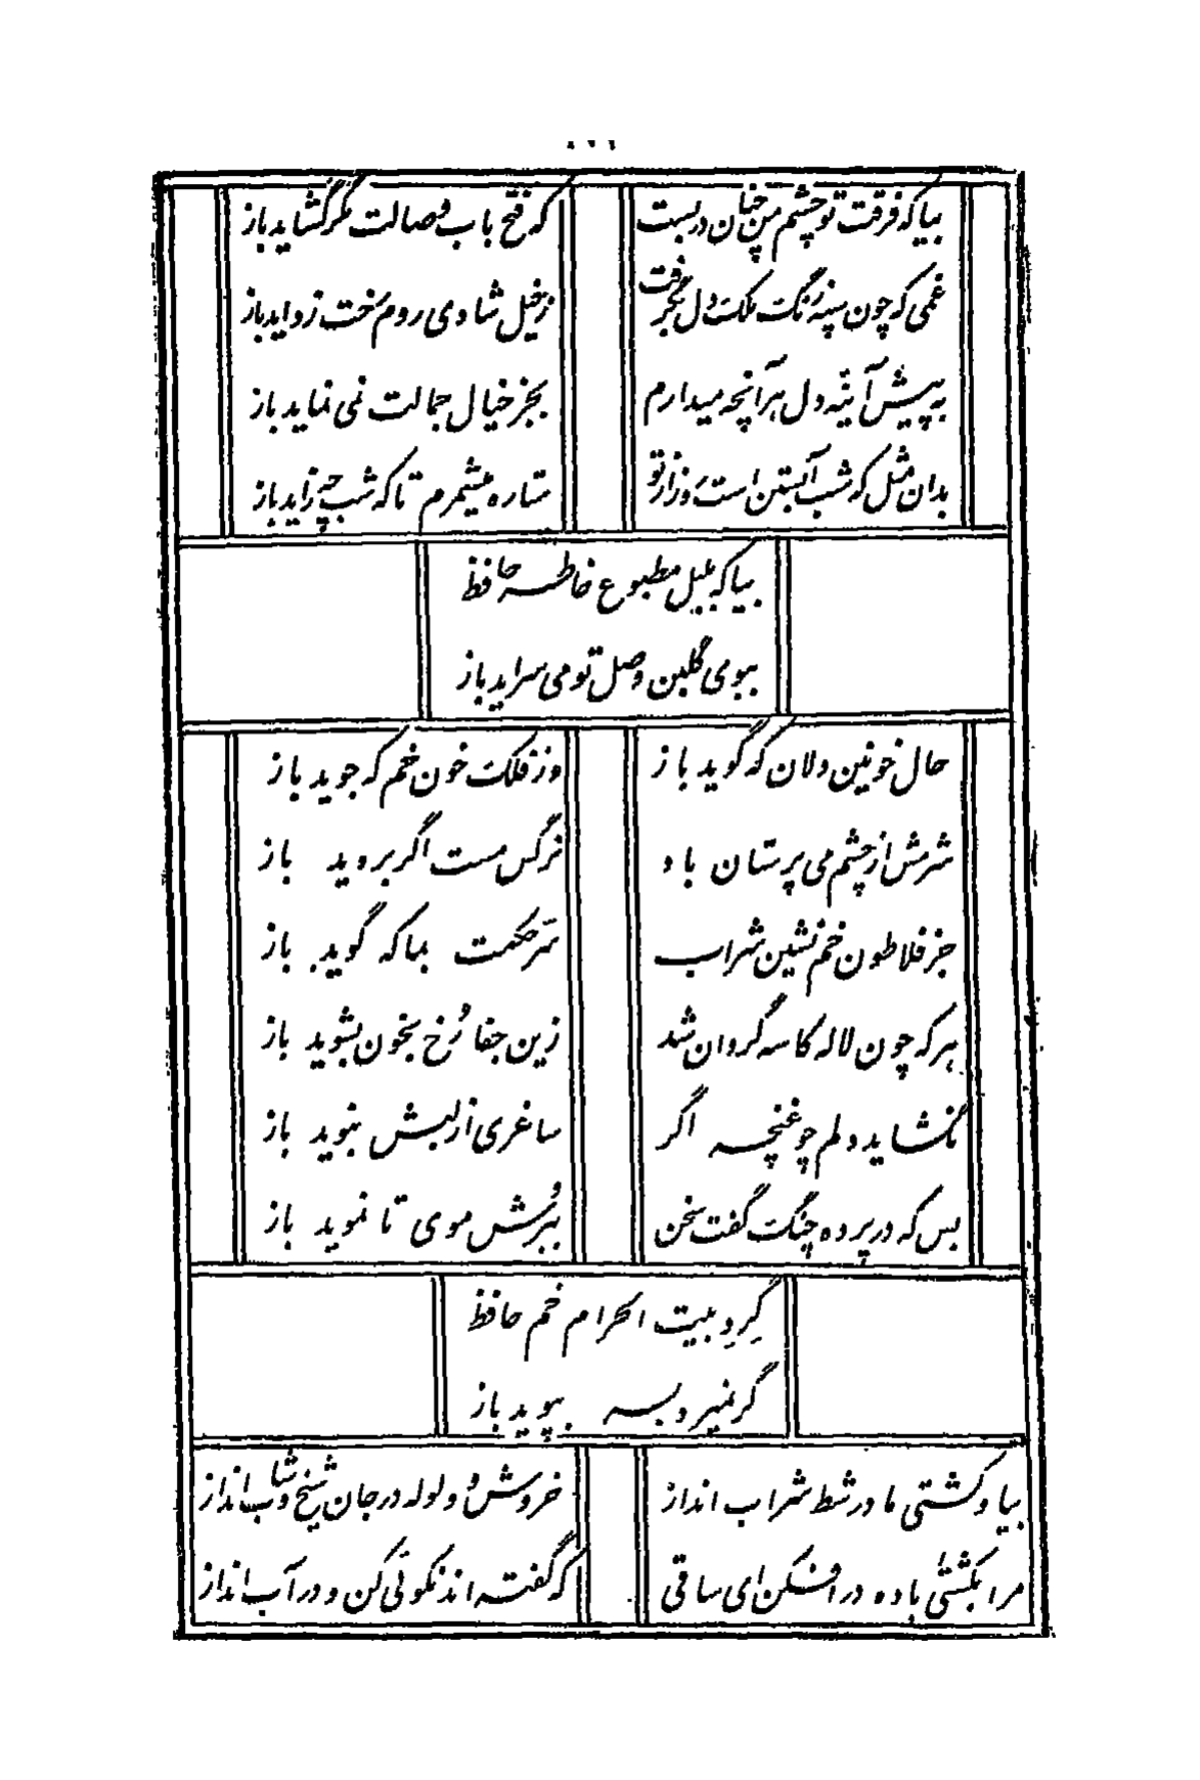 بیا که فرقت تو چشم من چنان در بست که فتح باب وصالت مگر گشاید باز
غمی که چون سپه زنگ ملک دل بگرفت زخیل شادی روم رخت زداید باز
به پیش آئینه دل هر آنچه میدارم بجز خیال جمالت نمی نماید باز
بدان مثل که شب آبستن است روز از تو ستاره میشمرم تا که شب چه زاید باز
بیا که بلبل مطبوع خاطر حافظ
ببوی گلبن وصل تو می سراید باز
حال خونین دلان که گوید باز وز فلک خون خم که جوید باز
شرمش از چشم می پرستان باد نرگس مست اگر بروید باز
جز فلاطون خم نشین شراب سر حکمت بما که گوید باز
هر که چون لاله کاسه گردان شد زین جفا رخ بخون بشوید باز
نگشاید دلم چو غنچه اگر ساغری از لبش نبوید باز
بس که در پرده چنگ گفت سخن ببرش موی تا نموید باز
گرد بیت الحرام خم حافظ
گر نمیرد بسر بپوید باز
بیا و کشتی ما در شط شراب انداز خروش و ولوله در جان شیخ و شاب انداز
مرا بکشتی باده در افکن ای ساقی که گفته اند نکوئی کن و در آب انداز